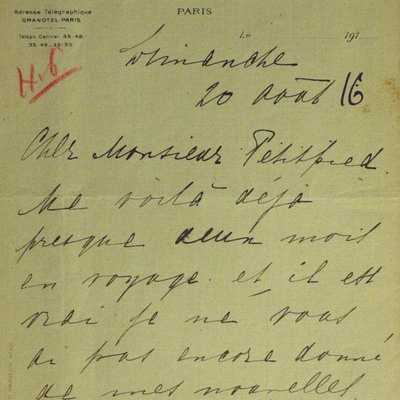 Adresse Télégraphique
GRANOTEL-PARIS
Téléph. Central 35-46
35-49_35-50
PARIS
Le 191
H.6
Dimanche
20 août 16
Cher Monsieur Petitpied
Me voilà déja
presque deux mois
en voyage. et il est
vrai je ne vous
ai pas encore donné
de mes nouvelles.